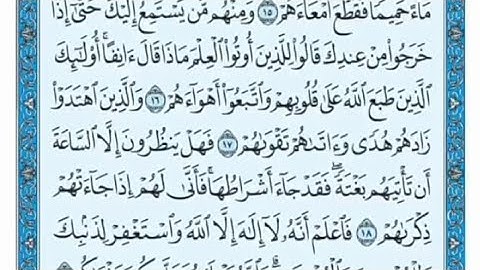 مَآءً حَمِيمًا فَقَطَّعَ أَمْعَآءَهُمْ ١٥ وَمِنْهُم مَّن يَسْتَمِعُ إِلَيْكَ حَتَّىٰٓ إِذَا
خَرَجُوا۟ مِنْ عِندِكَ قَالُوا۟ لِلَّذِينَ أُوتُوا۟ ٱلْعِلْمَ مَاذَا قَالَ ءَانِفًا ۚ أُو۟لَـٰٓئِكَ
ٱلَّذِينَ طَبَعَ ٱللَّهُ عَلَىٰ قُلُوبِهِمْ وَٱتَّبَعُوٓا۟ أَهْوَآءَهُمْ ١٦ وَٱلَّذِينَ ٱهْتَدَوْا۟
زَادَهُمْ هُدًى وَءَاتَىٰهُمْ تَقْوَىٰهُمْ ١٧ فَهَلْ يَنظُرُونَ إِلَّا ٱلسَّاعَةَ
أَن تَأْتِيَهُم بَغْتَةً ۖ فَقَدْ جَآءَ أَشْرَاطُهَا ۚ فَأَنَّىٰ لَهُمْ إِذَا جَآءَتْهُمْ
ذِكْرَىٰهُمْ ١٨ فَٱعْلَمْ أَنَّهُۥ لَآ إِلَـٰهَ إِلَّا ٱللَّهُ وَٱسْتَغْفِرْ لِذَنۢبِكَ